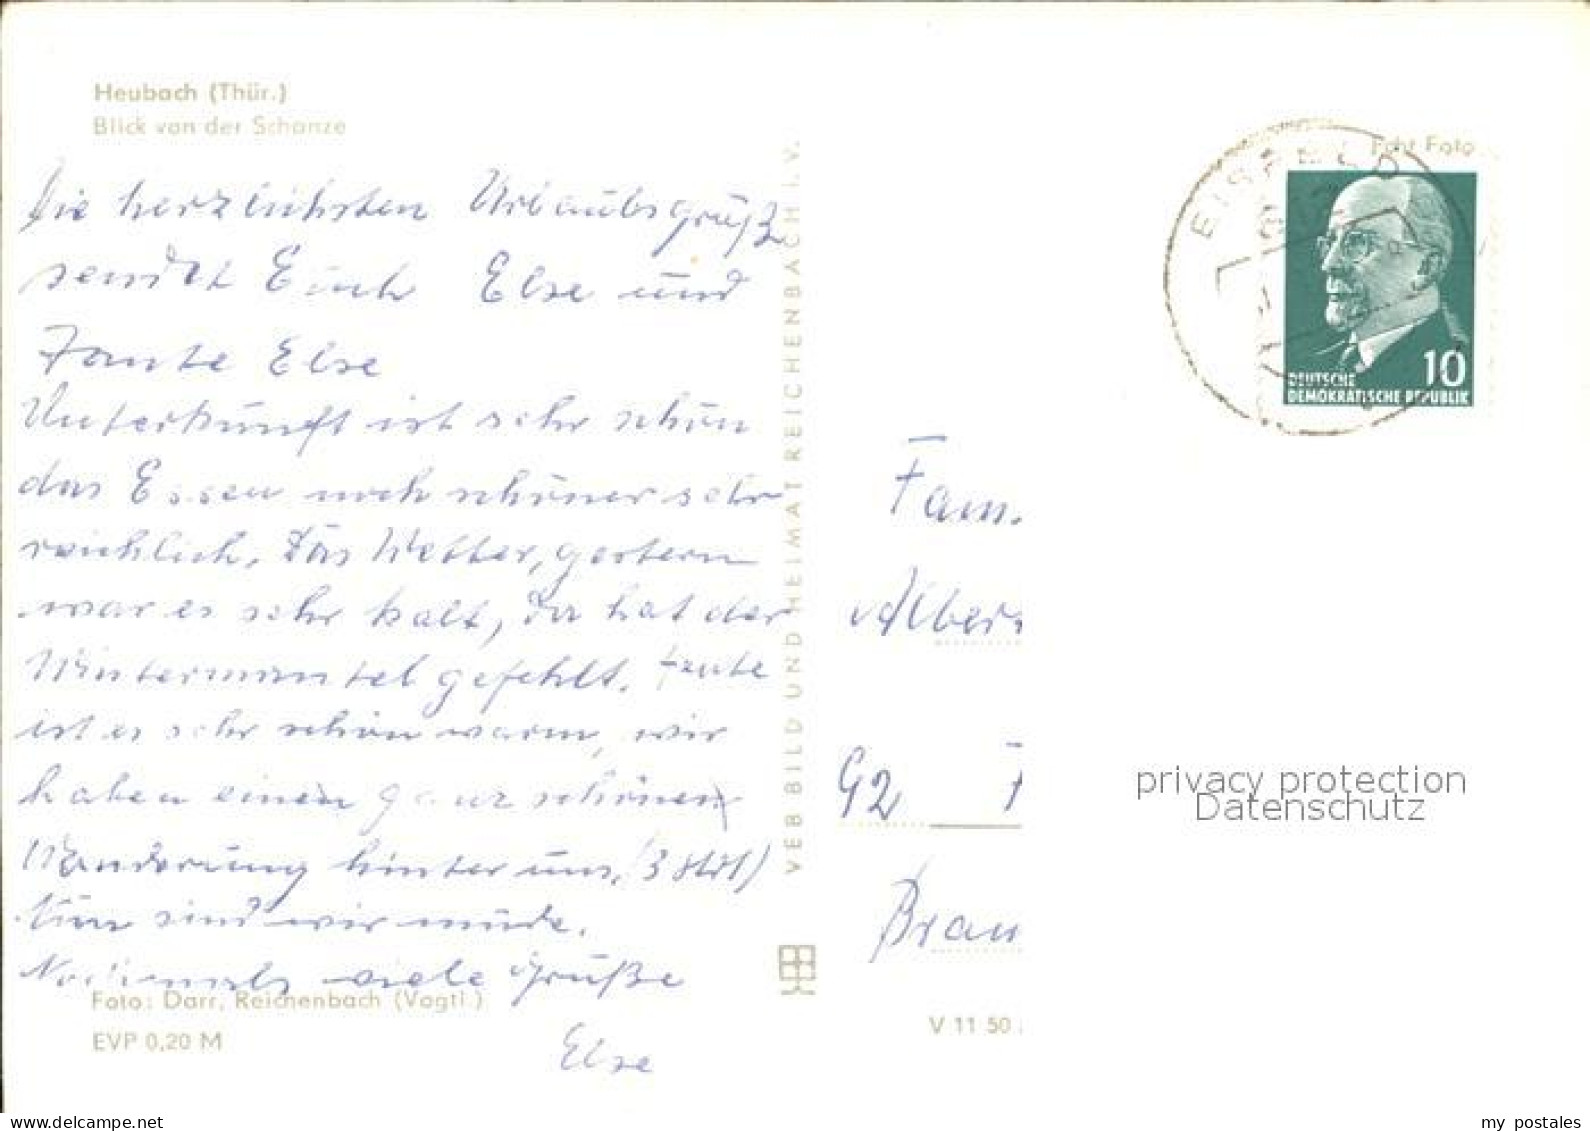 Heubach (Thür.)
Blick von der Schanze
Die herzlichsten Urlaubsgrüß
sendet Euch Else und
Tante Else
Unterkunft ist sehr schön
das Essen noch schöner sehr
reichlich. Das Wetter, gestern
war es sehr kalt, da hat der
Wintermantel gefehlt. heute
ist es sehr schön warm, wir
haben einen ganz schönen
Wanderung hinter uns, (3 Std)
Nun sind wir müde.
Nochmals viele Grüße
Else
Foto: Darr, Reichenbach (Vogtl.)
EVP 0,20 M
VEB BILD UND HEIMAT REICHENBACH I. V.
Echt Foto
EISFELD
10
DEUTSCHE
DEMOKRATISCHE REPUBLIK
Fam.
Alber
92
Brau
V 11 50
privacy protection
Datenschutz
www.delcampe.net
my_postales